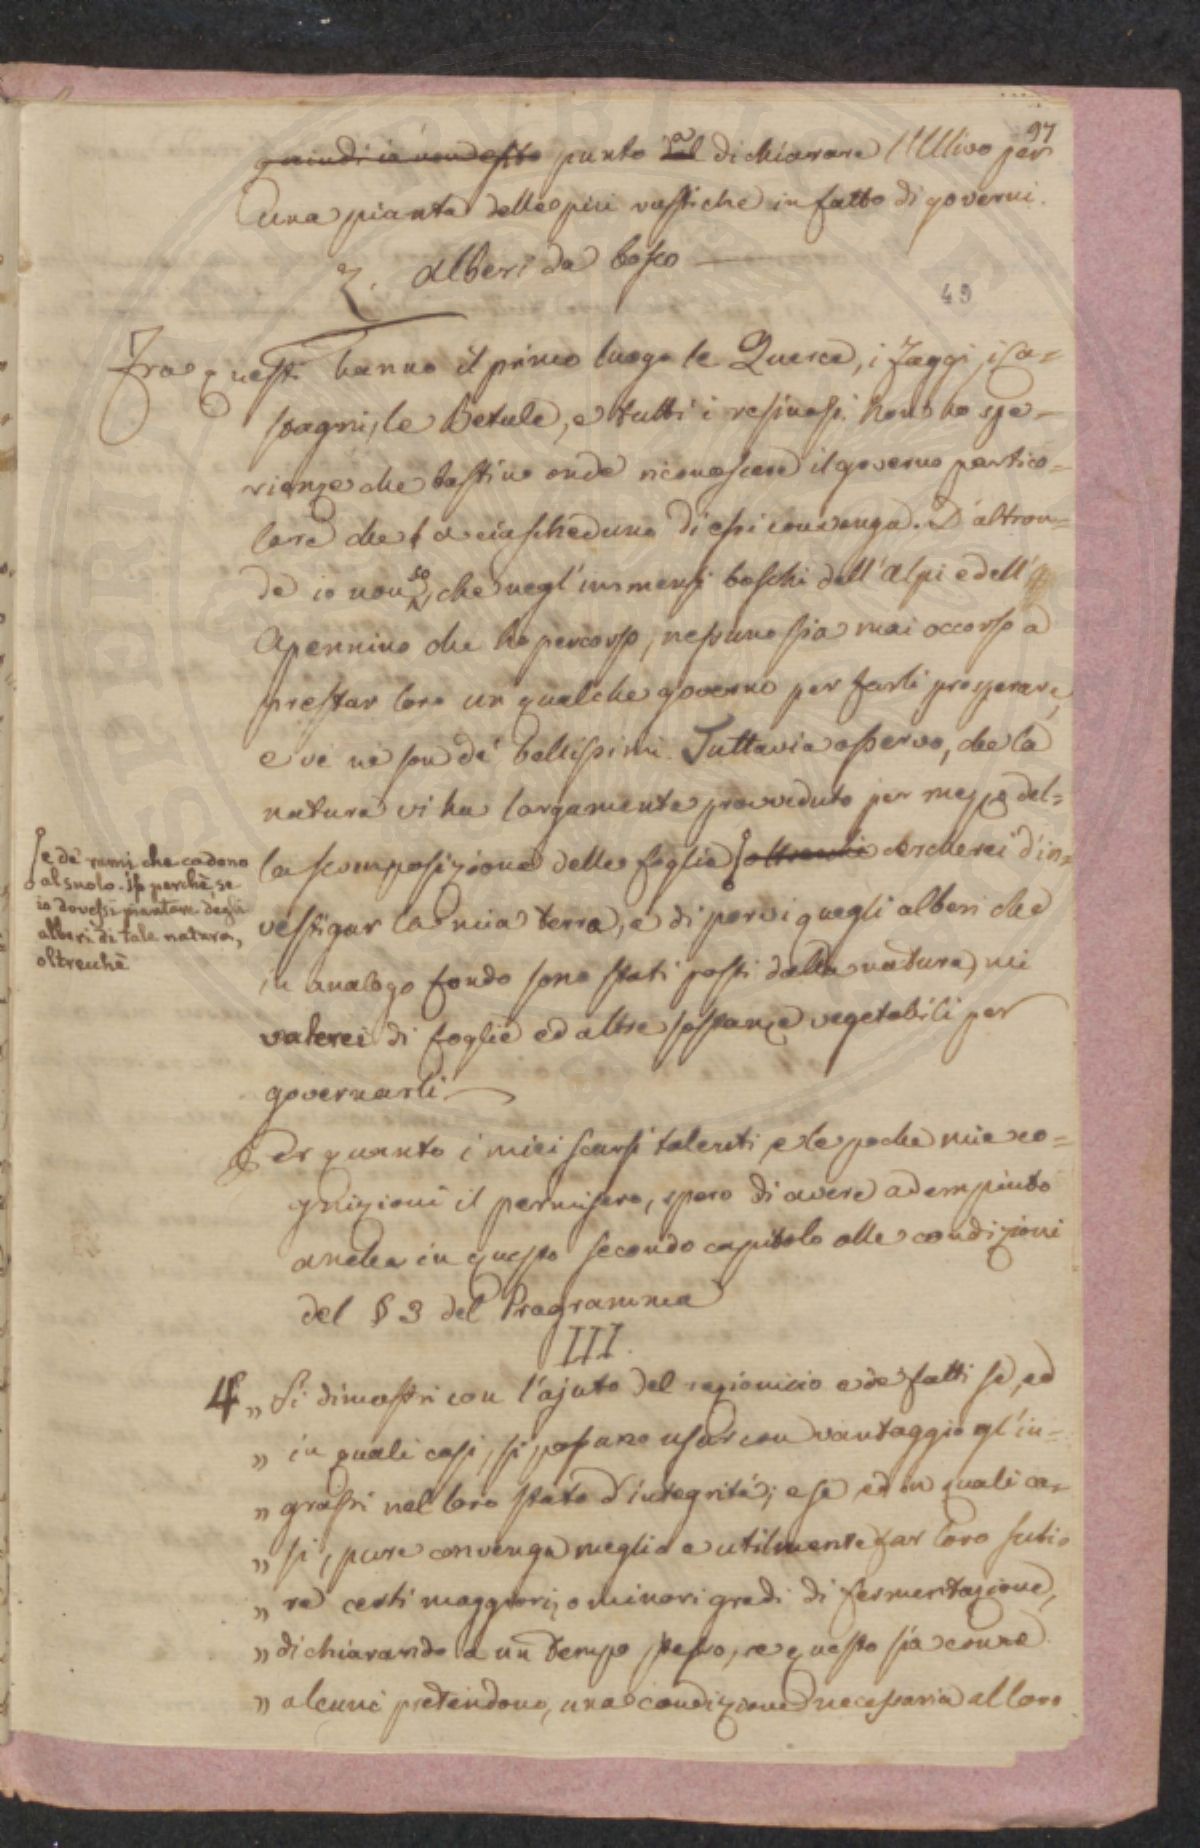 97
quindi io non esito punto a dichiarare l'Ulivo per
una pianta delle più rustiche in fatto di governi.
2. Alberi da bosco
49
Fra questi hanno il primo luogo le Querce, i Faggi, i Ca=
stagni, le Betule, e tutti i resinosi. Non ho spe=
rienze che bastino onde riconoscere il governo partico=
lare che a ciascheduno di essi convenga. D'altron=
de io non so, che negl'immensi boschi dell'Alpi e dell'
Apennino che ho percorso, nessuno sia mai occorso a
prestar loro un qualche governo per farli prosperare,
e ve ne son de' bellissimi. Tuttavia osservo, che la
natura vi ha largamente provveduto per mezzo del=
la scomposizione delle foglie oltrechè cercherei d'in=
vestigar la mia terra, e di porvi quegli alberi che
in analogo fondo sono stati posti dalla natura, mi
valerei di foglie ed altre sostanze vegetabili per
governarli.
e de' rami che cadono
al suolo. perchè, se
io dovessi piantare degli
alberi di tale natura,
oltrechè
Per quanto i miei scarsi talenti, e le poche mie co=
gnizioni il permisero, spero di avere adempiuto
anche in questo secondo capitolo alle condizioni
del § 3 del Programma
III.
4. „ Si dimostri con l'ajuto del raziocinio e de' fatti se, ed
„ in quali casi, si possano usar con vantaggio gl'in=
„ grassi nel loro stato d'integrità; e se ed in quali ca=
„ si, pure convenga meglio e utilmente far loro subi=
„ re certi maggiori, o minori gradi di fermentazione,
„ dichiarando a un tempo stesso, se questo sia come
„ alcuni pretendono, una condizione necessaria al loro